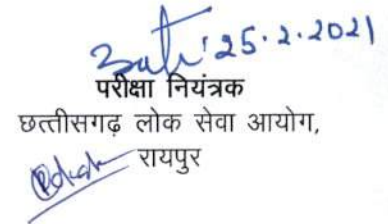 25.2.2021
परीक्षा नियंत्रक
छत्तीसगढ़ लोक सेवा आयोग,
रायपुर